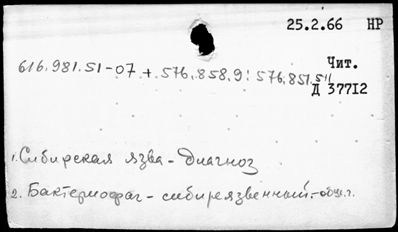 25.2.66 НР
616.981.51-07 + 576.858.9: 576.851.511
Чит.
Д 37712
1. Сибирская язва - Диагноз
2. Бактериофаг - сибиреязвенный.